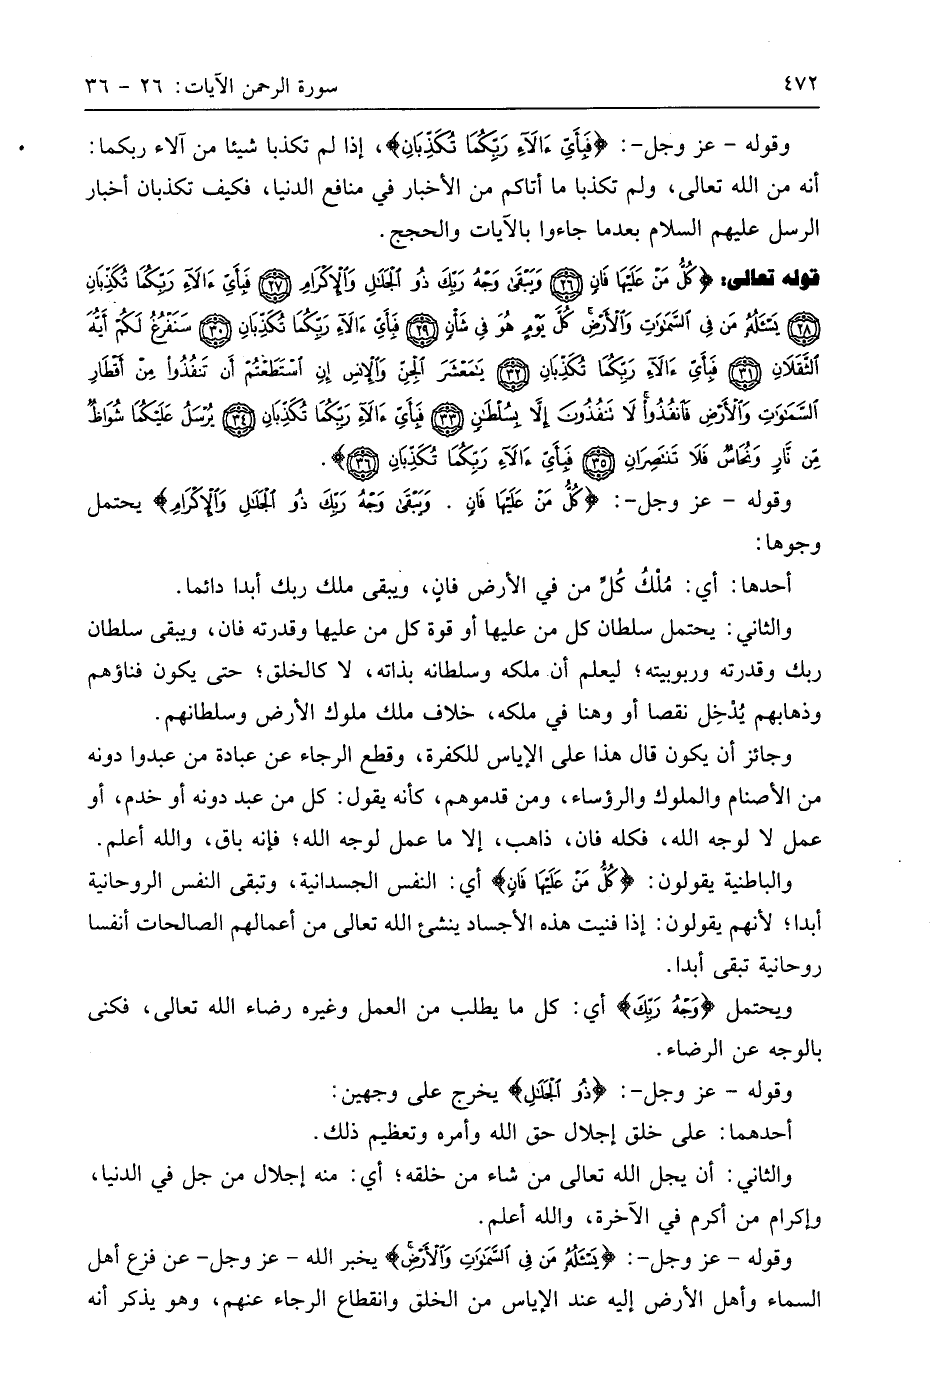 ٤٧٢
سورة الرحمن الآيات: ٢٦ - ٣٦
وقوله - عز وجل-: ﴿فَبِأَيِّ ءَالَآءِ رَبِّكُمَا تُكَذِّبَانِ﴾، إذا لم تكذبا شيئا من آلاء ربكما:
أنه من الله تعالى، ولم تكذبا ما أتاكم من الأخبار في منافع الدنيا، فكيف تكذبان أخبار
الرسل عليهم السلام بعدما جاءوا بالآيات والحجج.
قوله تعالى: ﴿كُلُّ مَنْ عَلَيْهَا فَانٍ ﴿٢٦﴾ وَيَبْقَىٰ وَجْهُ رَبِّكَ ذُو ٱلْجَلَٰلِ وَٱلْإِكْرَامِ ﴿٢٧﴾ فَبِأَيِّ ءَالَآءِ رَبِّكُمَا تُكَذِّبَانِ
﴿٢٨﴾ يَسْـَٔلُهُۥ مَن فِى ٱلسَّمَٰوَٰتِ وَٱلْأَرْضِ ۚ كُلَّ يَوْمٍ هُوَ فِى شَأْنٍ ﴿٢٩﴾ فَبِأَيِّ ءَالَآءِ رَبِّكُمَا تُكَذِّبَانِ ﴿٣٠﴾ سَنَفْرُغُ لَكُمْ أَيُّهَ
ٱلثَّقَلَانِ ﴿٣١﴾ فَبِأَيِّ ءَالَآءِ رَبِّكُمَا تُكَذِّبَانِ ﴿٣٢﴾ يَٰمَعْشَرَ ٱلْجِنِّ وَٱلْإِنسِ إِنِ ٱسْتَطَعْتُمْ أَن تَنفُذُوا۟ مِنْ أَقْطَارِ
ٱلسَّمَٰوَٰتِ وَٱلْأَرْضِ فَٱنفُذُوا۟ ۚ لَا تَنفُذُونَ إِلَّا بِسُلْطَٰنٍ ﴿٣٣﴾ فَبِأَيِّ ءَالَآءِ رَبِّكُمَا تُكَذِّبَانِ ﴿٣٤﴾ يُرْسَلُ عَلَيْكُمَا شُوَاظٌ
مِّن نَّارٍ وَنُحَاسٌ فَلَا تَنتَصِرَانِ ﴿٣٥﴾ فَبِأَيِّ ءَالَآءِ رَبِّكُمَا تُكَذِّبَانِ ﴿٣٦﴾﴾.
وقوله - عز وجل-: ﴿كُلُّ مَنْ عَلَيْهَا فَانٍ . وَيَبْقَىٰ وَجْهُ رَبِّكَ ذُو ٱلْجَلَٰلِ وَٱلْإِكْرَامِ﴾ يحتمل
وجوها:
أحدها: أي: مُلْكُ كُلِّ من في الأرض فانٍ، ويبقى ملك ربك أبدا دائما.
والثاني: يحتمل سلطان كل من عليها أو قوة كل من عليها وقدرته فان، ويبقى سلطان
ربك وقدرته وربوبيته؛ ليعلم أن ملكه وسلطانه بذاته، لا كالخلق؛ حتى يكون فناؤهم
وذهابهم يُدْخِل نقصا أو وهنا في ملكه، خلاف ملك ملوك الأرض وسلطانهم.
وجائز أن يكون قال هذا على الإياس للكفرة، وقطع الرجاء عن عبادة من عبدوا دونه
من الأصنام والملوك والرؤساء، ومن قدموهم، كأنه يقول: كل من عبد دونه أو خدم، أو
عمل لا لوجه الله، فكله فان، ذاهب، إلا ما عمل لوجه الله؛ فإنه باق، والله أعلم.
والباطنية يقولون: ﴿كُلُّ مَنْ عَلَيْهَا فَانٍ﴾ أي: النفس الجسدانية، وتبقى النفس الروحانية
أبدا؛ لأنهم يقولون: إذا فنيت هذه الأجساد ينشئ الله تعالى من أعمالهم الصالحات أنفسا
روحانية تبقى أبدا.
ويحتمل ﴿وَجْهُ رَبِّكَ﴾ أي: كل ما يطلب من العمل وغيره رضاء الله تعالى، فكنى
بالوجه عن الرضاء.
وقوله - عز وجل-: ﴿ذُو ٱلْجَلَٰلِ﴾ يخرج على وجهين:
أحدهما: على خلق إجلال حق الله وأمره وتعظيم ذلك.
والثاني: أن يجل الله تعالى من شاء من خلقه؛ أي: منه إجلال من جل في الدنيا،
وإكرام من أكرم في الآخرة، والله أعلم.
وقوله - عز وجل-: ﴿يَسْـَٔلُهُۥ مَن فِى ٱلسَّمَٰوَٰتِ وَٱلْأَرْضِ﴾ يخبر الله - عز وجل- عن فزع أهل
السماء وأهل الأرض إليه عند الإياس من الخلق وانقطاع الرجاء عنهم، وهو يذكر أنه